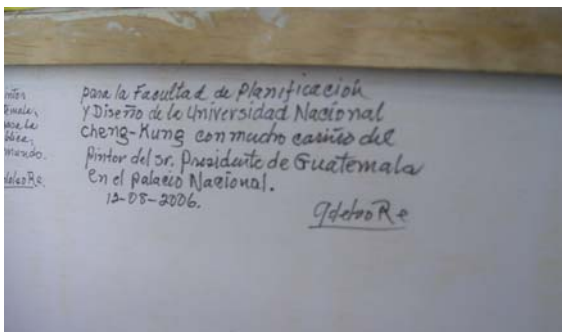 para la Facultad de Planificación
y Diseño de la Universidad Nacional
Cheng-Kung con mucho cariño del
Pintor del sr. Presidente de Guatemala
en el Palacio Nacional.
12-08-2006.